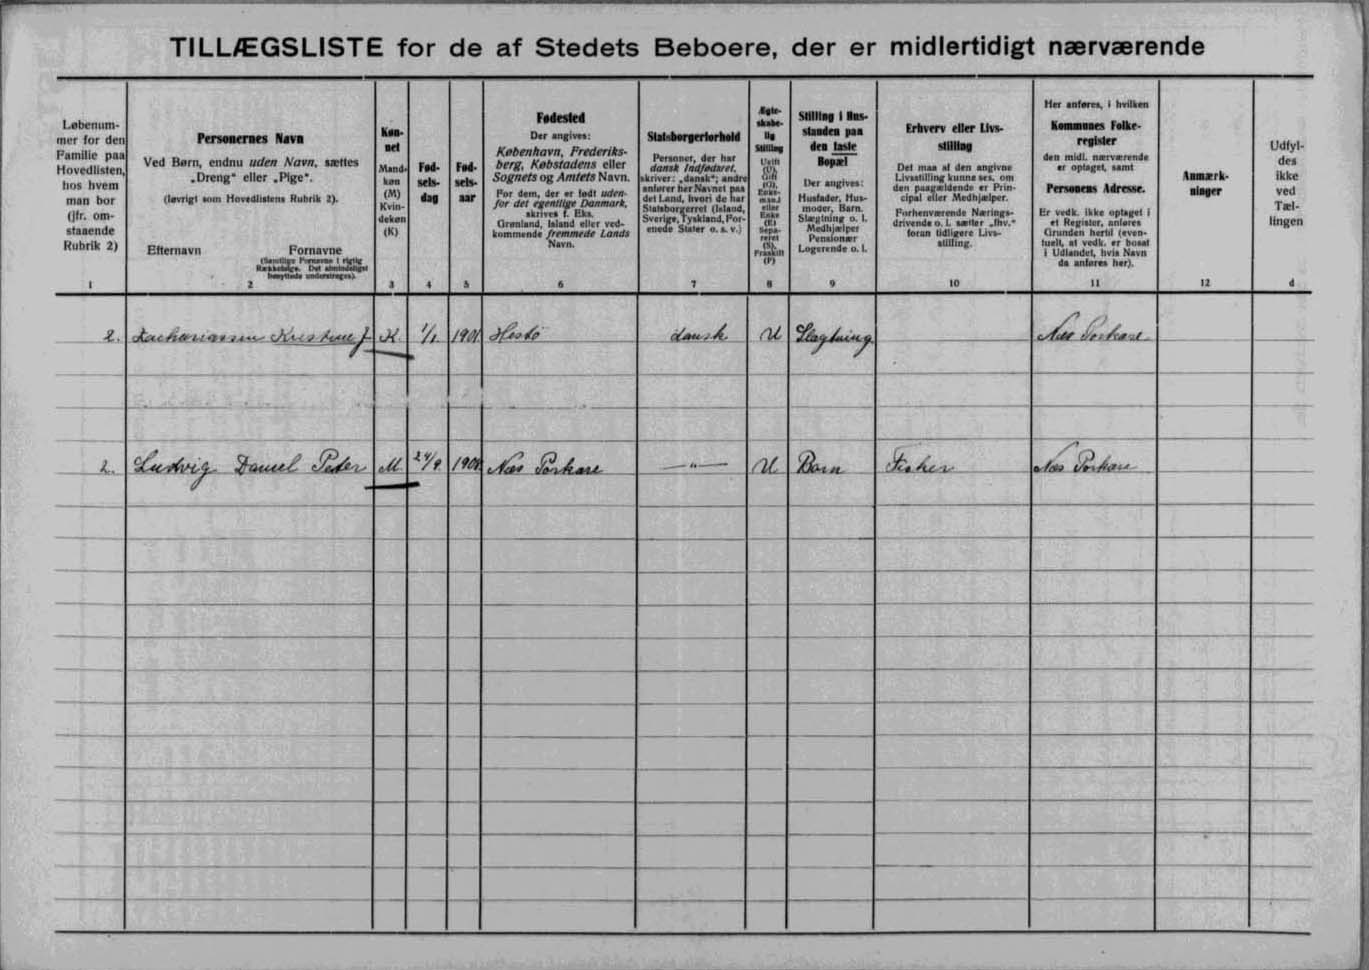 TILLÆGSLISTE for de af Stedets Beboere, der er midlertidigt nærværende
Løbenum-
mer for den
Familie paa
Hovedlisten,
hos hvem
man bor
(jfr. om-
staaende
Rubrik 2)
1
Personernes Navn
Ved Børn, endnu uden Navn, sættes
„Dreng“ eller „Pige“.
(Iøvrigt som Hovedlistens Rubrik 2).
Efternavn Fornavne
(Samtlige Fornavne i rigtig
Rækkefølge. Det almindeligst
benyttede understreges).
2
Køn-
net
Mand-
køn
(M)
Kvin-
dekøn
(K)
3
Fød-
sels-
dag
4
Fød-
sels-
aar
5
Fødested
Der angives:
København, Frederiks-
berg, Købstadens eller
Sognets og Amtets Navn.
For dem, der er født uden-
for det egentlige Danmark,
skrives f. Eks.
Grønland, Island eller ved-
kommende fremmede Lands
Navn.
6
Statsborgerforhold
Personer, der har
dansk Indfødsret,
skriver: „dansk“; andre
anfører her Navnet paa
det Land, hvori de har
Statsborgerret (Island,
Sverige, Tyskland, For-
enede Stater o. s. v.)
7
Ægte-
skabe-
lig
Stilling
Ugift
(U),
Gift
(G),
Enke-
mand
eller
Enke
(E)
Sepa-
reret
(S),
Fraskilt
(F)
8
Stilling i Hus-
standen paa
den faste
Bopæl
Der angives:
Husfader, Hus-
moder, Barn,
Slægtning o. l.
Medhjælper
Pensionær
Logerende o. l.
9
Erhverv eller Livs-
stilling
Det maa af den angivne
Livsstilling kunne ses, om
den paagældende er Prin-
cipal eller Medhjælper.
Forhenværende Nærings-
drivende o. l. sætter „fhv.“
foran tidligere Livs-
stilling.
10
Her anføres, i hvilken
Kommunes Folke-
register
den midl. nærværende
er optaget, samt
Personens Adresse.
Er vedk. ikke optaget i
et Register, anføres
Grunden hertil (even-
tuelt, at vedk. er bosat
i Udlandet, hvis Navn
da anføres her).
11
Anmærk-
ninger
12
Udfyl-
des
ikke
ved
Tæl-
lingen
d
2. Zachariassen Kristine J K. 1/1 1901 Hestø dansk U Slægtning Næs Porkere
2. Ludvig Daniel Peter M 24/9 1908 Næs Porkere —〃— U Barn Fisker Næs Porkere